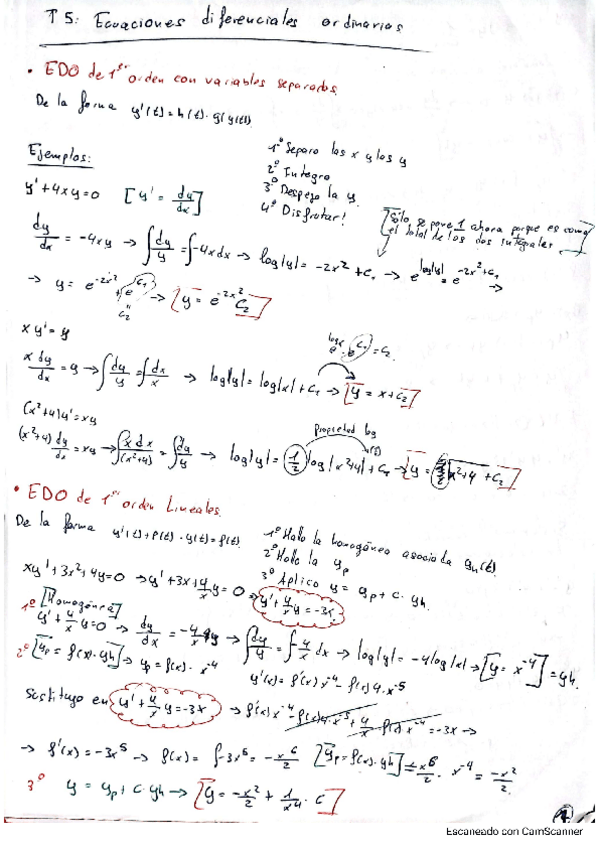 T 5: Ecuaciones diferenciales ordinarias
• EDO de 1er orden con variables separadas
De la forma y'(t)=h(t)·g(y(t)).
Ejemplos:
1º Separo las x y las y
2º Integro
3º Despejo la y.
4º Disfrutar!
y'+4xy=0 [y' = dy/dx]
[Sólo se pone 1 ahora porque es como el total de las dos integrales]
dy/dx = -4xy → ∫dy/y = ∫-4xdx → log|y| = -2x²+C₁ → e^log|y| = e^-2x²+C₁ →
→ y = e^-2x² + e^C₁ → [y = e^-2x² C₂]
C₂
xy' = y
e^logx · e^C₁ = C₂
x dy/dx = y → ∫dy/y = ∫dx/x → log|y| = log|x| + C₁ → [y = x+C₂]
(x²+4)y' = xy
propiedad log
(x²+4) dy/dx = xy → ∫x dx/(x²+4) = ∫dy/y → log|y| = 1/2 log|x²+4| + C₁ → [y = √x²+4 + C₂]
• EDO de 1er orden Lineales.
De la forma y'(t)+P(t)·y(t)=f(t).
1º Hallo la homogénea asociada yh(t).
2º Hallo la yp
3º Aplico y = yp + c·yh.
xy'+3x²+4y=0 → y'+3x+4/x y = 0 → y'+4/x y = -3x.
1º [Homogénea]
y'+4/x y=0 → dy/dx = -4/x y → ∫dy/y = ∫-4/x dx → log|y| = -4log|x| → [y = x^-4] = yh.
2º [yp = f(x)·yh] → yp = f(x)·x^-4
y'(x) = f'(x)x^-4 - f(x)4·x^-5
Sustituyo en y'+4/x y=-3x → f'(x)x^-4 - f(x)4·x^-5 + 4/x f(x)x^-4 = -3x →
→ f'(x) = -3x^5 → f(x) = ∫-3x^5 = -x^6/2 [yp = f(x)·yh] = -x^6/2 · x^-4 = -x²/2.
3º y = yp + c·yh → [y = -x²/2 + 1/x^4 · c]
1.
Escaneado con CamScanner